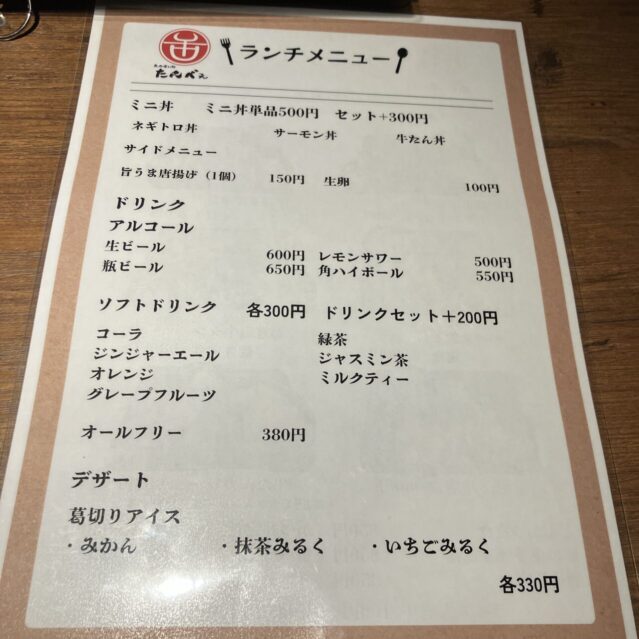 たんべえ
ランチメニュー
ミニ丼 ミニ丼単品500円 セット+300円
ネギトロ丼 サーモン丼 牛たん丼
サイドメニュー
旨うま唐揚げ（1個） 150円 生卵 100円
ドリンク
アルコール
生ビール 600円 レモンサワー 500円
瓶ビール 650円 角ハイボール 550円
ソフトドリンク 各300円 ドリンクセット+200円
コーラ 緑茶
ジンジャーエール ジャスミン茶
オレンジ ミルクティー
グレープフルーツ
オールフリー 380円
デザート
葛切りアイス
・みかん ・抹茶みるく ・いちごみるく
各330円